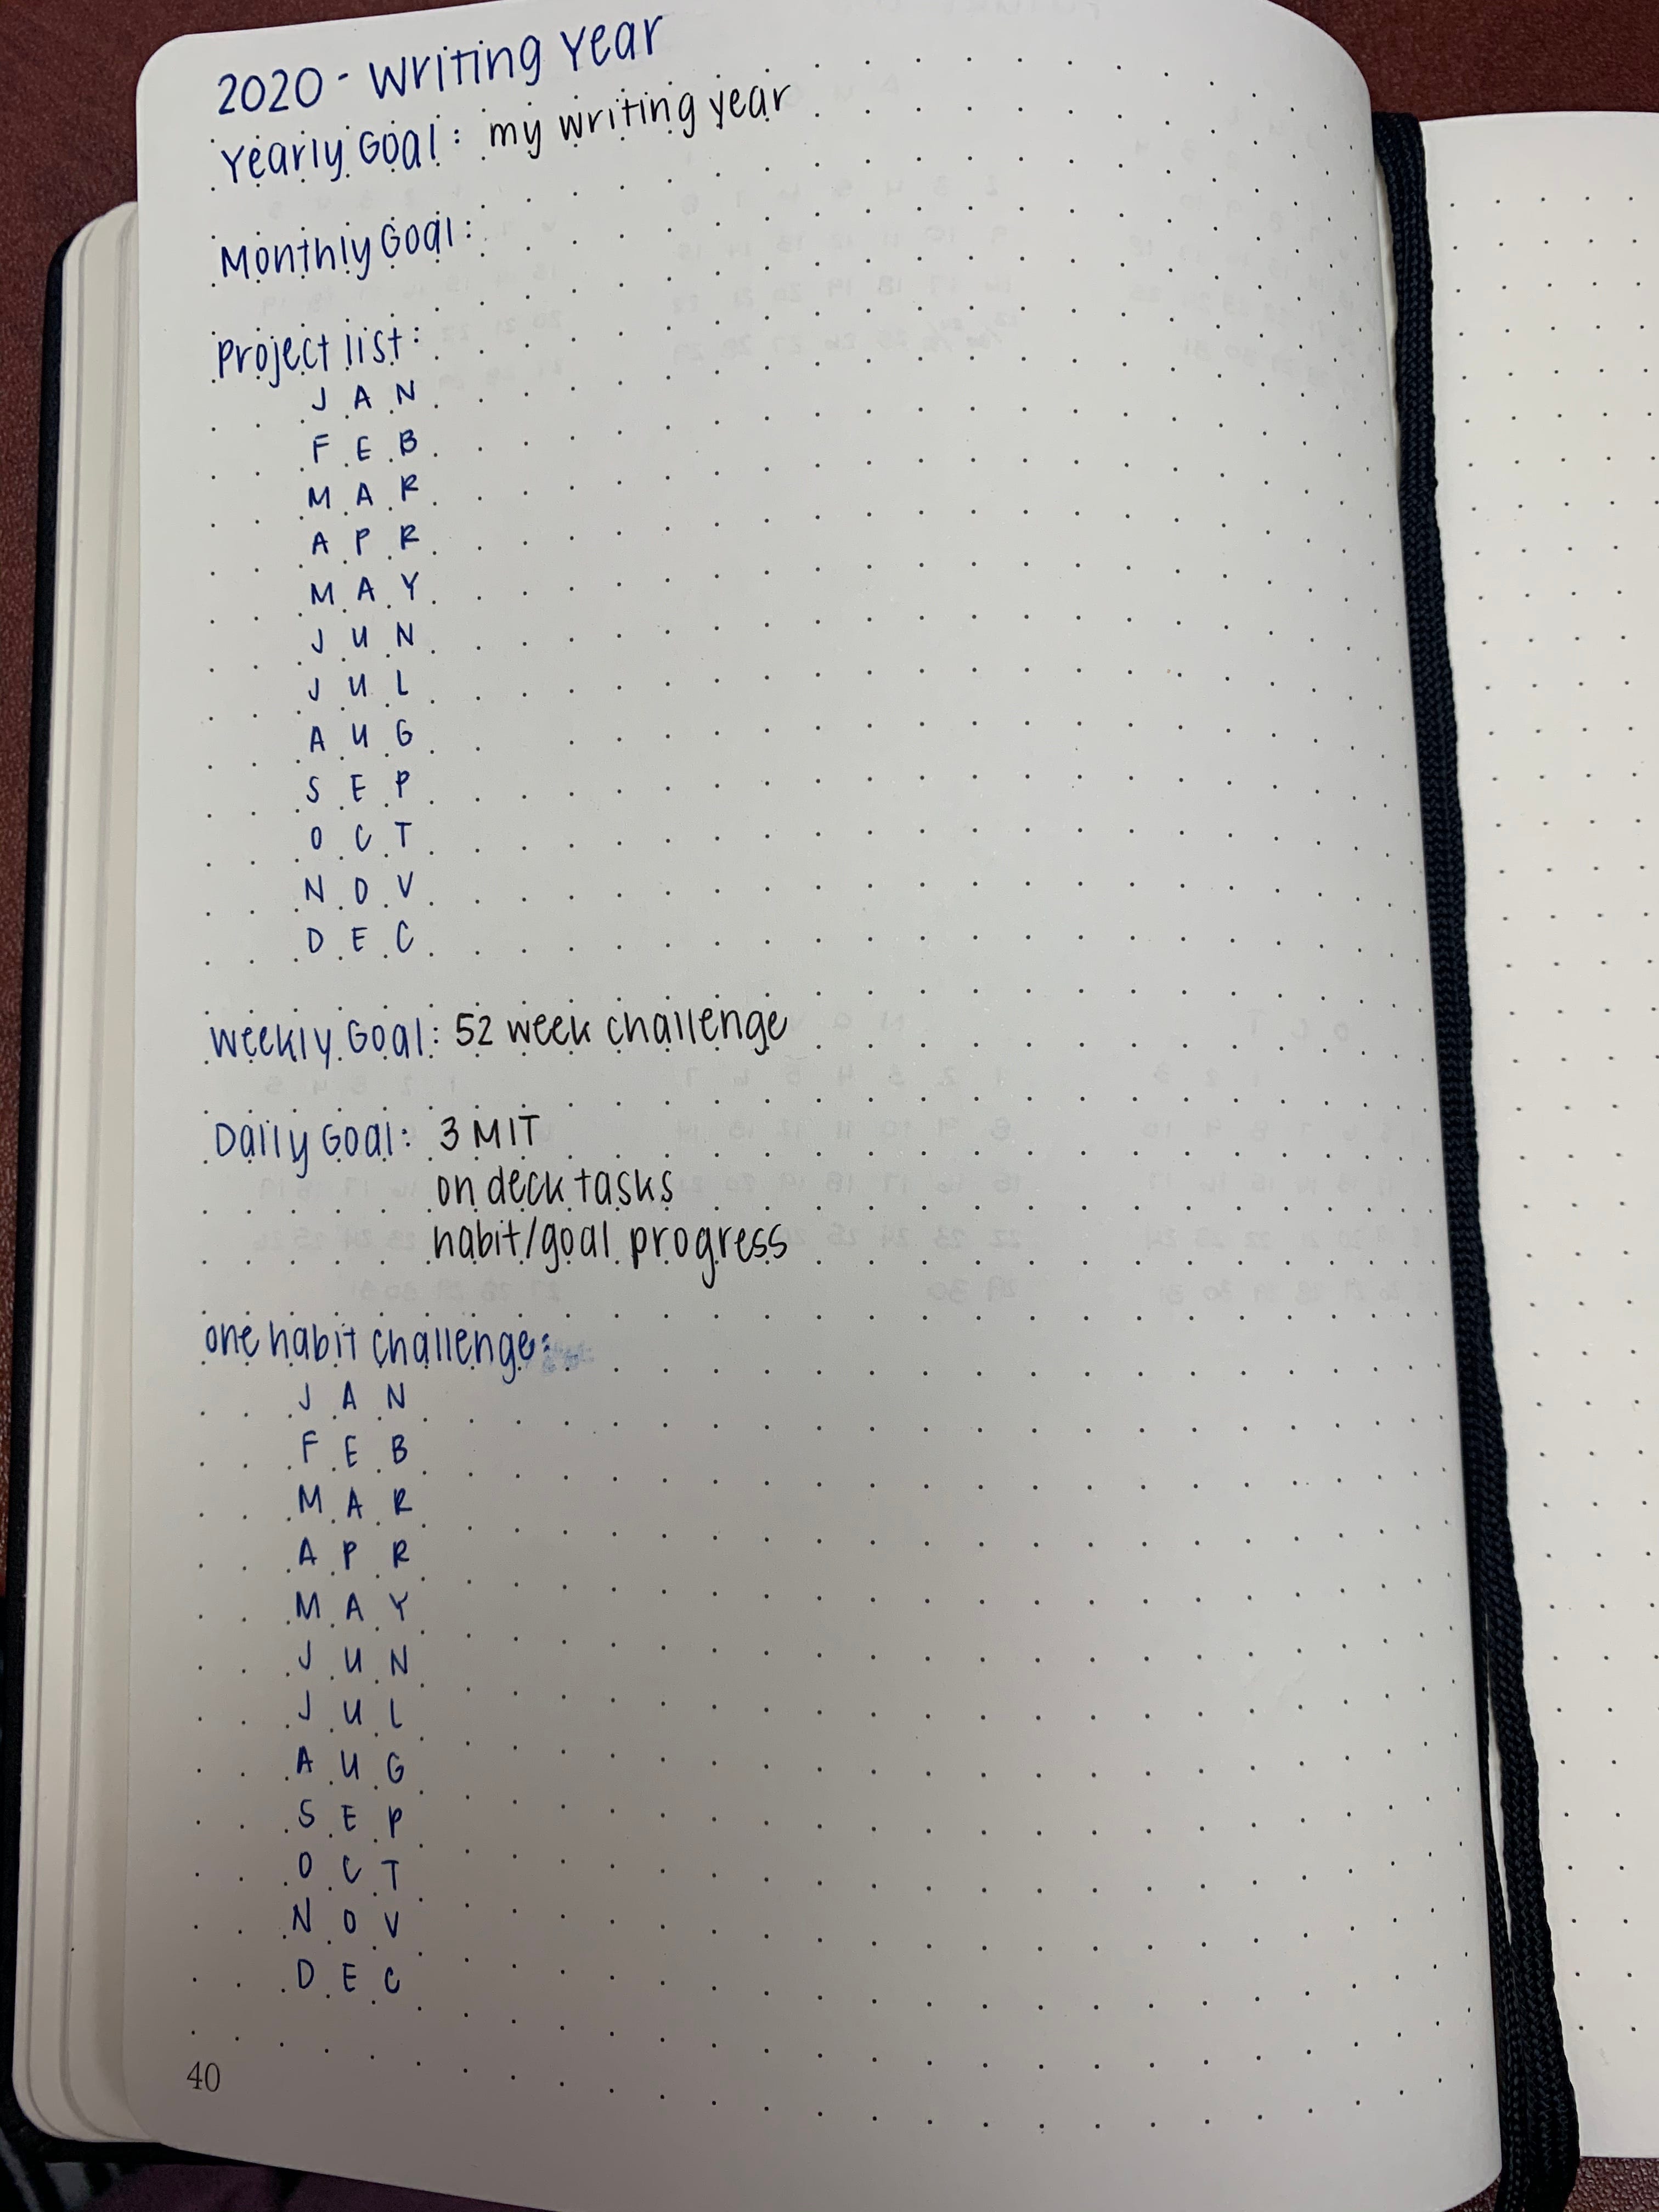 2020 - Writing Year
Yearly Goal: my writing year
Monthly Goal:
Project list:
JAN
FEB
MAR
APR
MAY
JUN
JUL
AUG
SEP
OCT
NOV
DEC
Weekly Goal: 52 week challenge
Daily Goal: 3 MIT
on deck tasks
habit/goal progress
one habit challenge:
JAN
FEB
MAR
APR
MAY
JUN
JUL
AUG
SEP
OCT
NOV
DEC
40